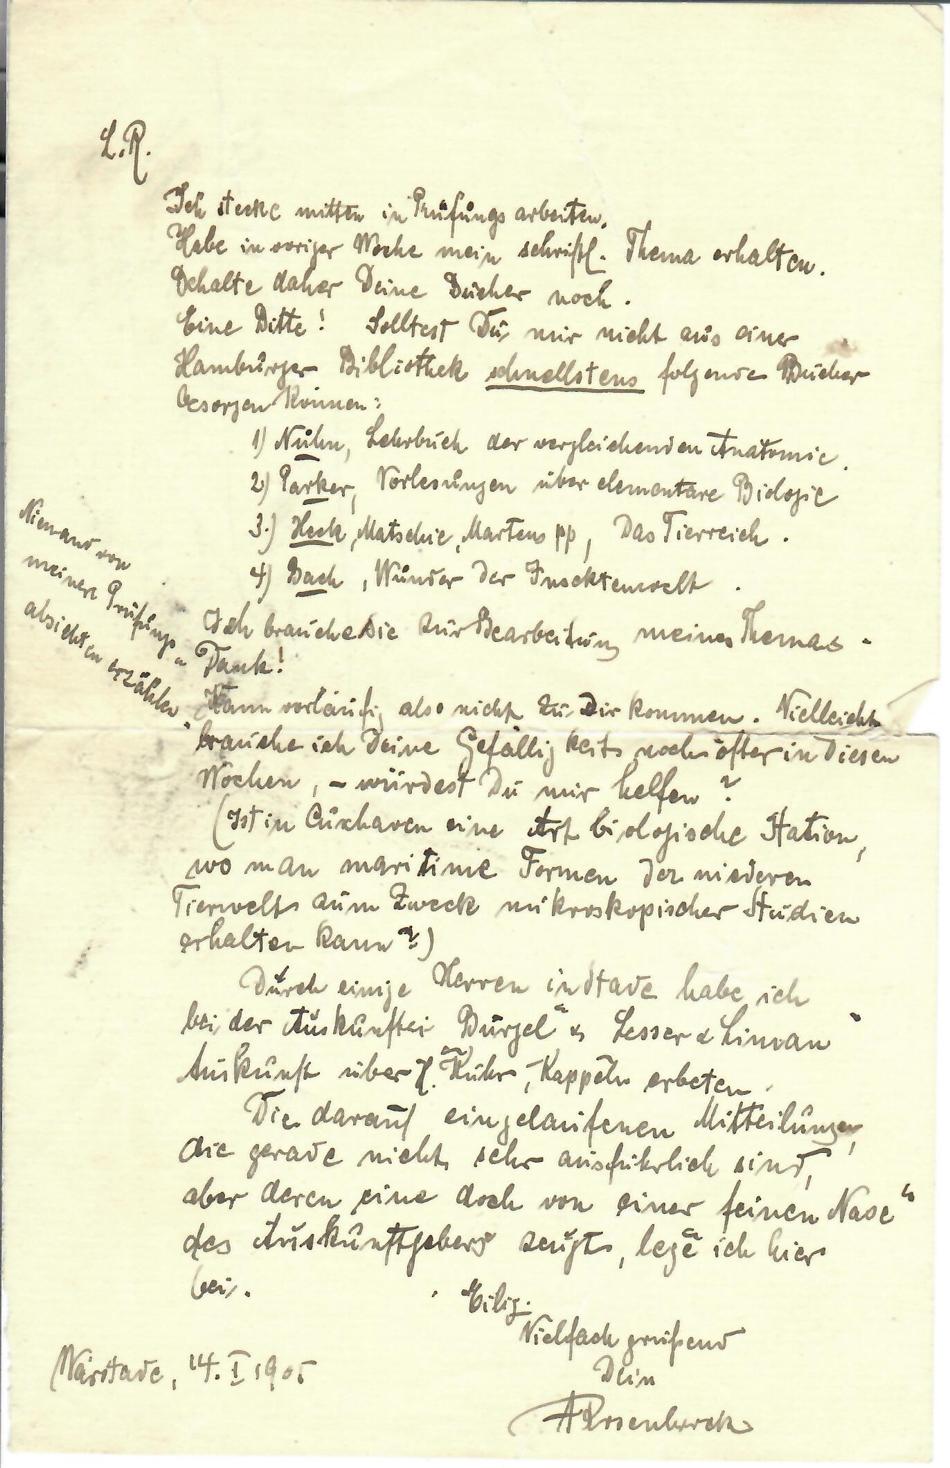 L. R.
Ich stecke mitten in Prüfungsarbeiten.
Habe in voriger Woche mein schriftl. Thema erhalten.
Behalte daher Deine Bücher noch.
Eine Bitte! Solltest Du mir nicht aus einer
Hamburger Bibliothek schnellstens folgende Bücher
besorgen können:
1) Nuhn, Lehrbuch der vergleichenden Anatomie.
2) Parker, Vorlesungen über elementare Biologie
3.) Heck, Matschie, Martens pp, Das Tierreich.
4) Bach, Wunder der Insektenwelt.
Ich brauche sie zur Bearbeitung meines Themas.
Dank!
Niemand von
meinen Prüfungs-
absichten erzählen.
Kann vorläufig also nicht zu Dir kommen. Vielleicht
brauche ich Deine Gefälligkeit noch öfter in diesen
Wochen, – würdest Du mir helfen?
(Ist in Cuxhaven eine Art biologische Station,
wo man maritime Formen der niederen
Tierwelt zum Zweck mikroskopischer Studien
erhalten kann?)
Durch einige Herren in Stade habe ich
bei der Auskunftei Bürgel" & Lesser & Liman"
Auskunft über Kuhr, Kappeln erbeten.
Die darauf eingelaufenen Mitteilungen,
die gerade nicht sehr ausführlich sind,
aber deren eine doch von einer feinen Nase"
des Auskunftgebers zeugt, lege ich hier
bei.
Eilig.
Vielfach grüßend
Dein
Warstade, 14. I 1905
ARosenbrock